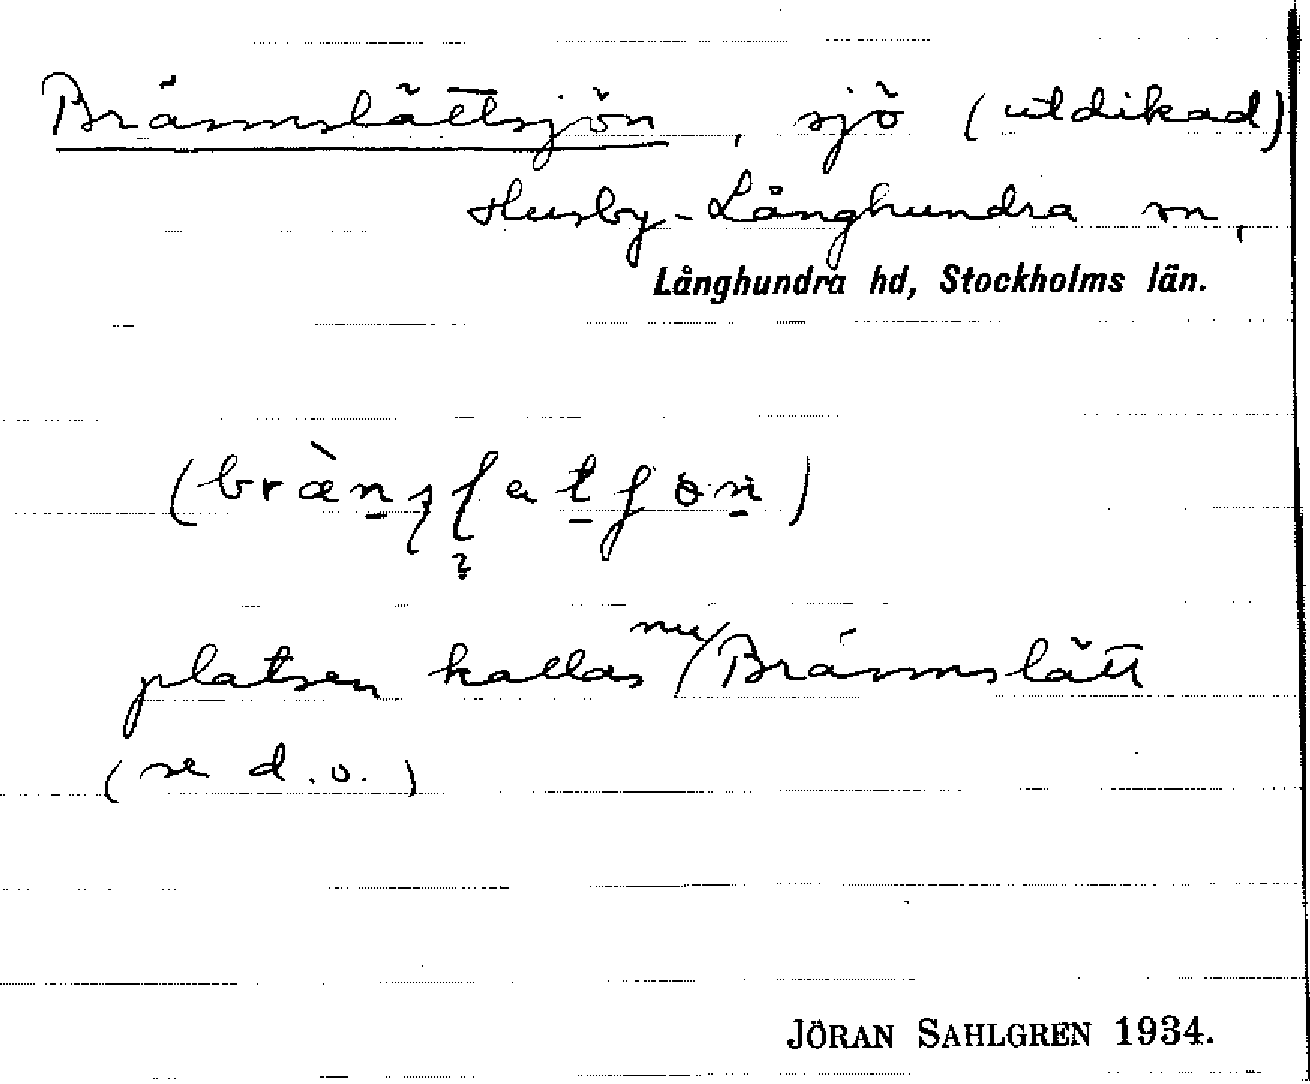 Brännslättsjön, sjö (utdikad)
Husby-Långhundra sn,
Långhundra hd, Stockholms län.
platsen kallas nu Brännslätt
(se d.o.)
JÖRAN SAHLGREN 1934.